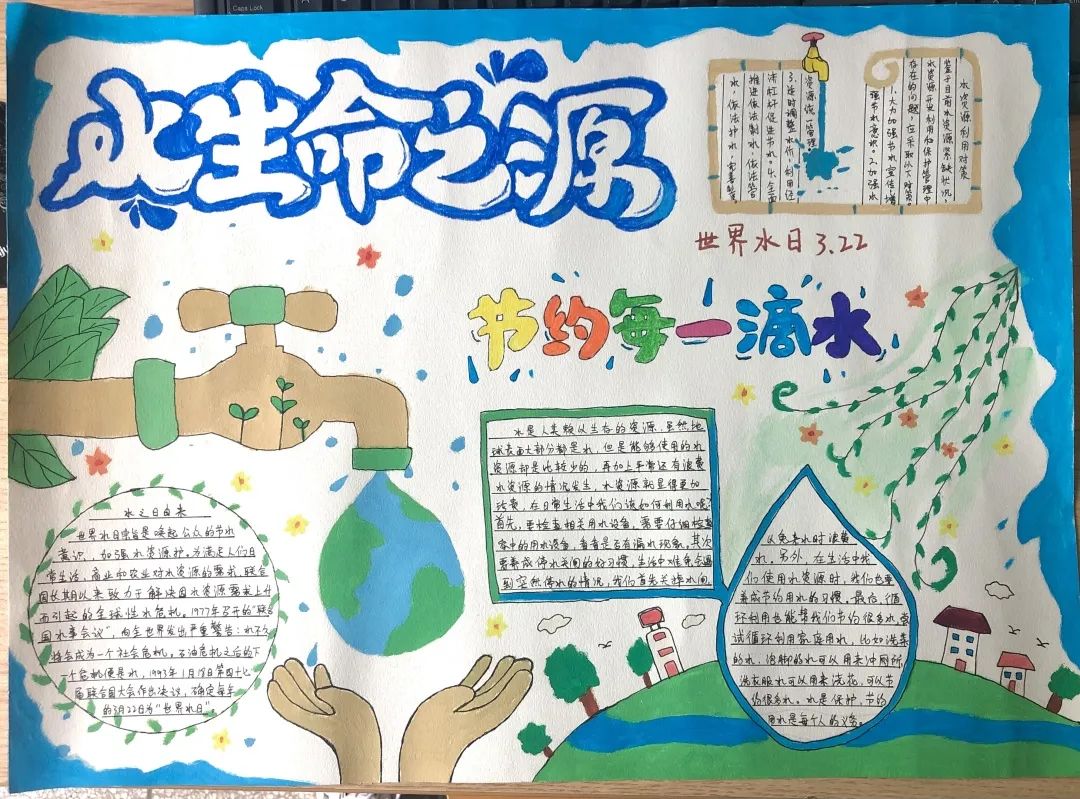 Caps Lock
水生命之源
水资源利用对策
鉴于目前水资源紧缺状况，
水资源开发利用和保护管理中
存在的问题，应采取以下对策
1、大力加强节水宣传，增
强节水意识。2、加强水
资源统一管理
3、适时调整水价，利用经
济杠杆促进节水。4、全面
推进依法制水、依法管
水、依法护水，完善
世界水日3.22
节约每一滴水
水是人类赖以生存的资源，虽然地
球表面大部分都是水，但是能够使用的水
资源却是比较少的，再加上平常还有浪费
水资源的情况发生，水资源就显得更加
珍贵，在日常生活中我们该如何利用水呢？
首先，要检查相关用水设备，需要仔细检查
家中的用水设备，看看是否有漏水现象。其次
要养成停水关闸的好习惯，生活中难免会遇
到突然停水的情况，我们首先关掉水闸，
以免来水时浪费
水。另外，在生活中我
们使用水资源时，我们也要
养成节约用水的习惯。最后，循
环利用也能帮我们节约很多水，尝
试循环利用家庭用水，比如洗菜
的水，洗脚的水可以用来冲厕所，
洗衣服水可以用来浇花，可以节
约很多水。水是保护，节约
用水是每个人的义务。
水之日由来
世界水日宗旨是唤起公众的节水
意识，加强水资源护。为满足人们日
常生活、商业和农业对水资源的需求，联合
国长期以来致力于解决因水资源需求上升
而引起的全球性水危机。1977年召开的“联合
国水事会议”，向全世界发出严重警告：水不久
将会成为一个社会危机，石油危机之后的下
一个危机便是水。1993年1月18日第四十七
届联合国大会作出决议，确定每年
的3月22日为“世界水日”。